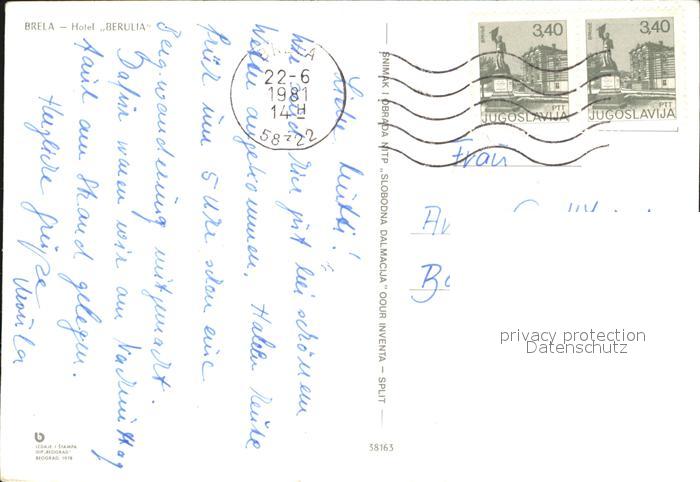 BRELA — Hotel „BERULIA"
Liebe Mutti!
Wir sind hier gut bei schönem
Wetter angekommen. Haben heute
früh um 5 Uhr schon eine
Bergwanderung mitgemacht.
Dafür waren wir am Nachmittag
faul am Strand gelegen.
Herzliche Grüße
22-6
1981
14-
58722
SNIMAK I OBRADA NTP „SLOBODNA DALMACIJA" OOUR INVENTA — SPLIT
3,40
PTT
JUGOSLAVIJA
3,40
PTT
JUGOSLAVIJA
Frau
privacy protection
Datenschutz
IZDAJE I ŠTAMPA
BIP „BEOGRAD"
BEOGRAD, 1978
38163